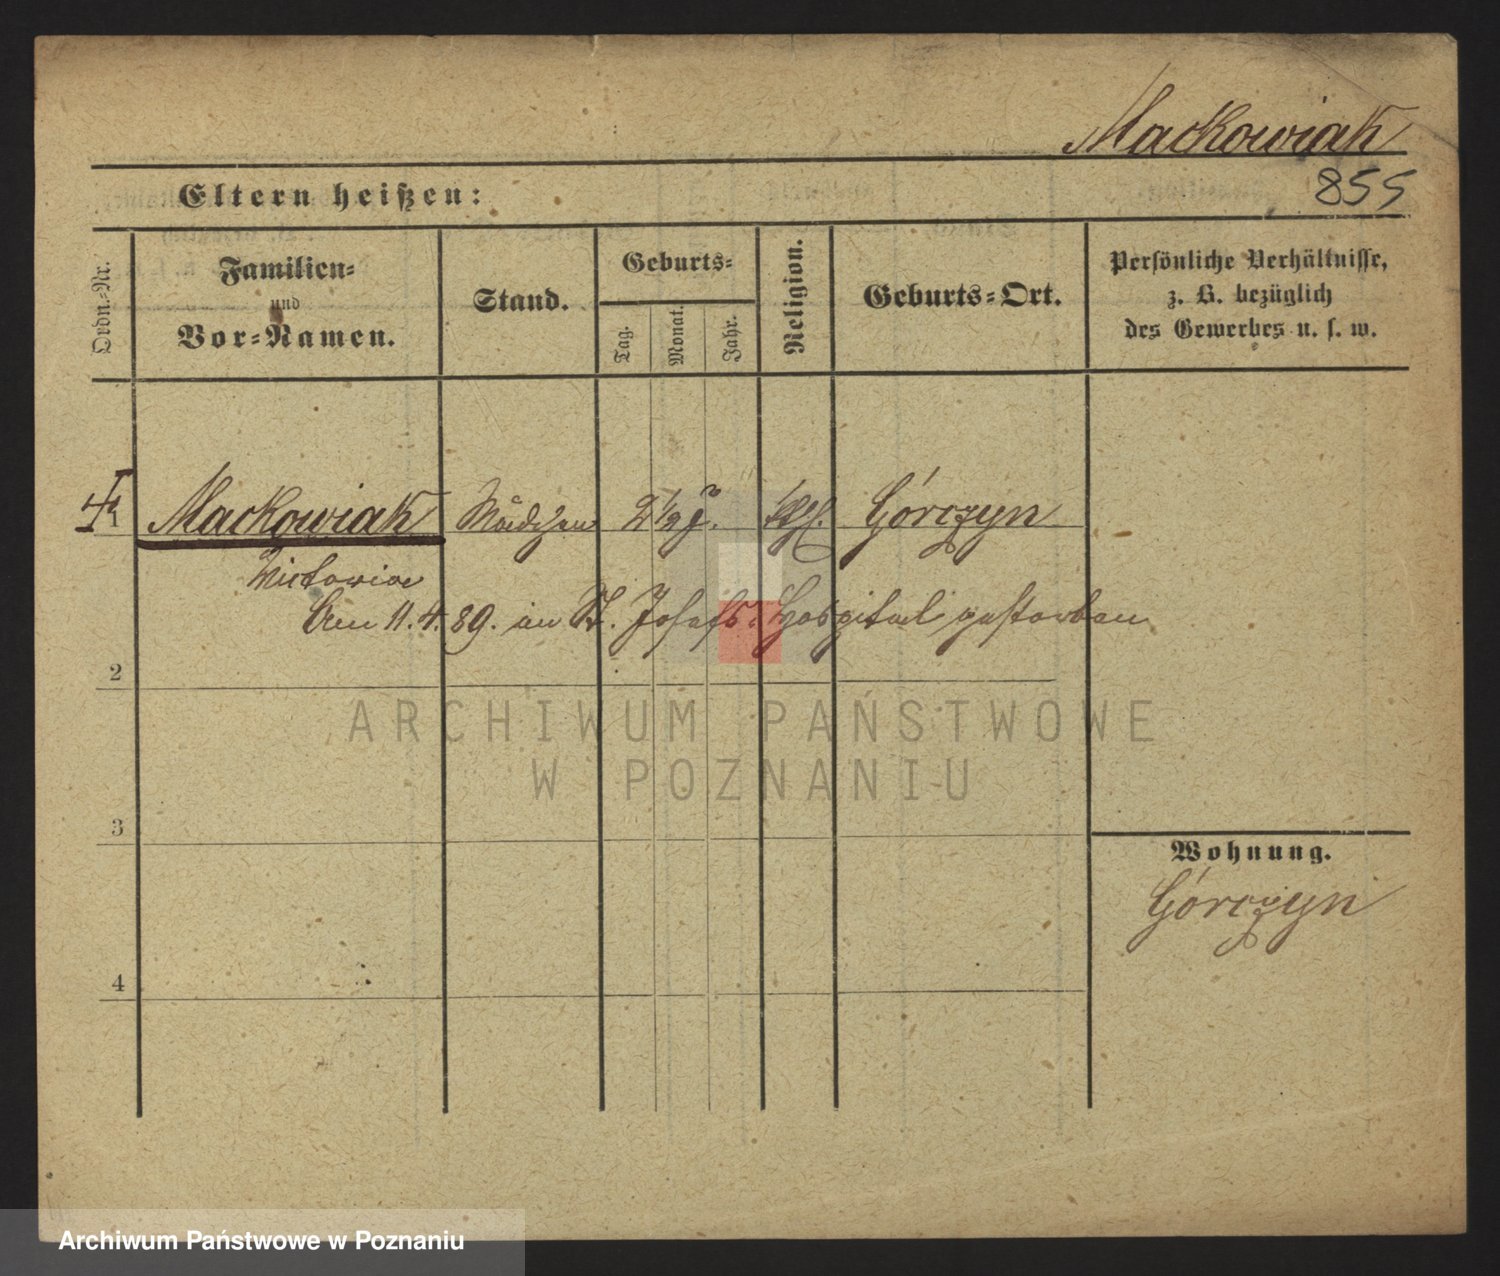 Mackowiak
855
Eltern heißen:
Ordn.-Nr.
Familien-
und
Vor-Namen.
Stand.
Geburts-
Tag.
Monat.
Jahr.
Religion.
Geburts-Ort.
Persönliche Verhältnisse,
z. B. bezüglich
des Gewerbes u. s. w.
1 Mackowiak Mädchen 2 1/2 J. kth. Górczyn
Victoria
Am 11.4.89. im St. Josefs-Hospital gestorben
2
ARCHIWUM PAŃSTWOWE
W POZNANIU
3
Wohnung.
Górczyn
4
Archiwum Państwowe w Poznaniu